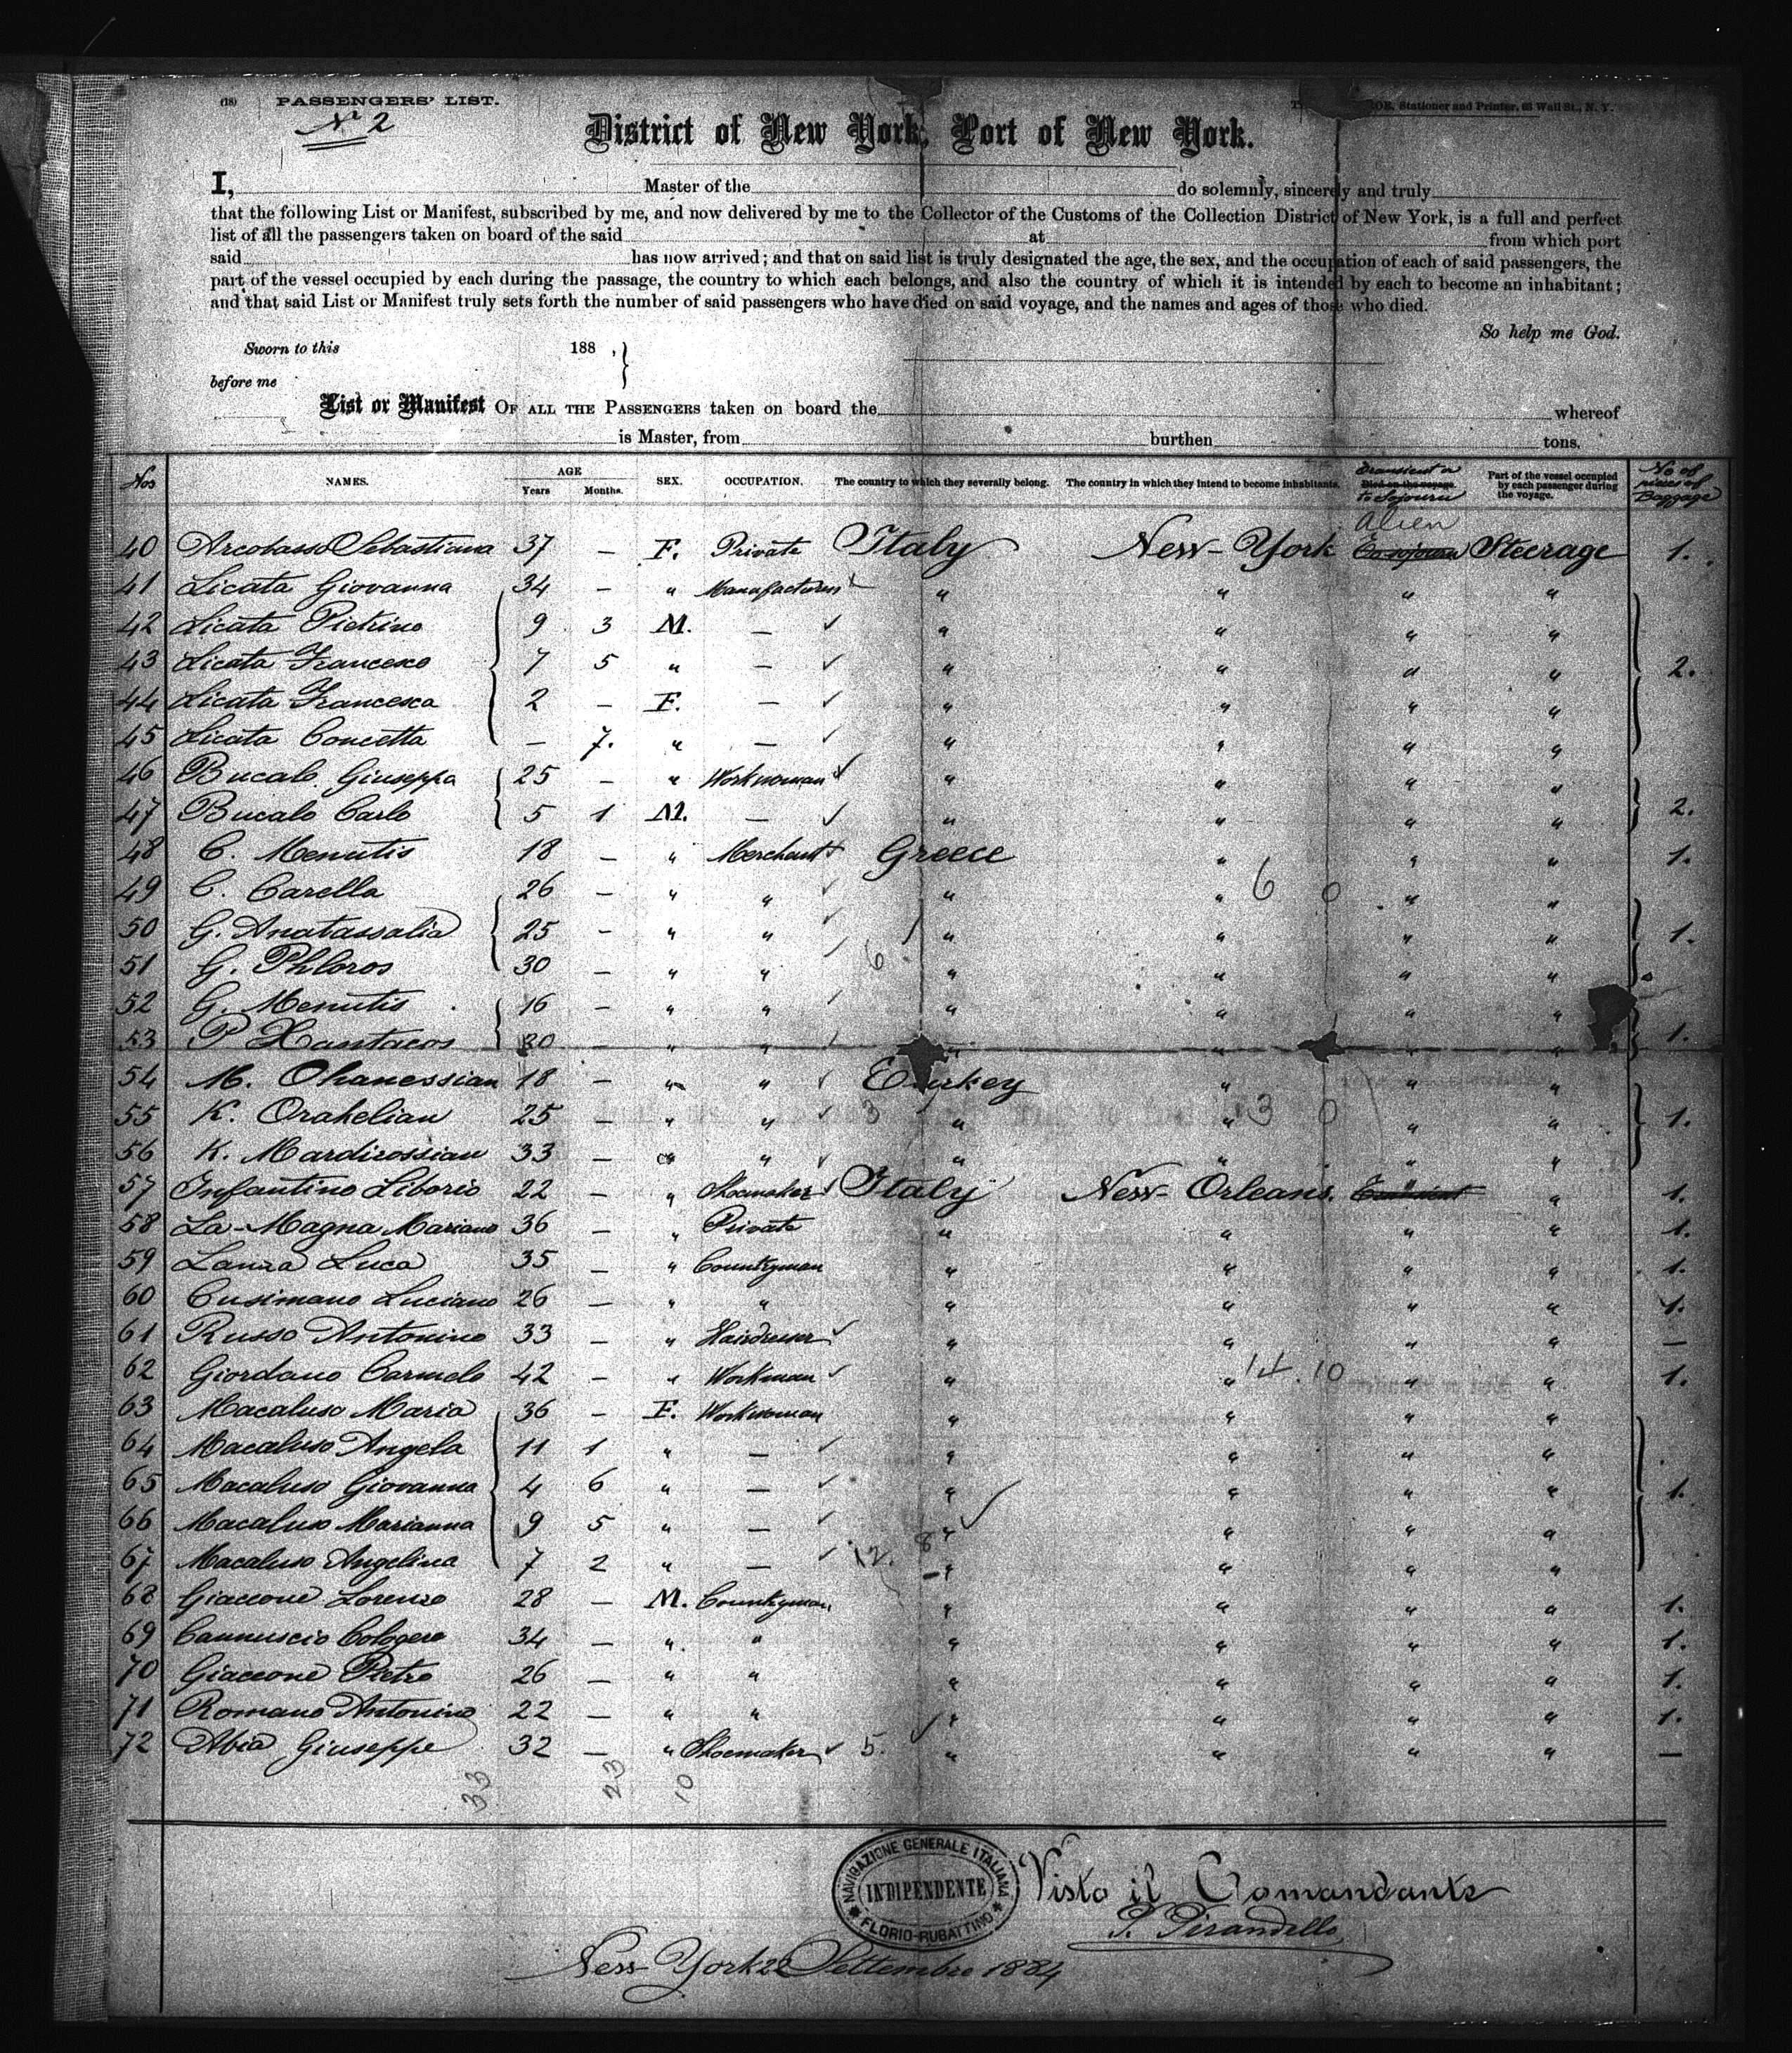 (18) PASSENGERS' LIST.
Nº 2
Stationer and Printer, 63 Wall St., N. Y.
District of New York, Port of New York.
I, Master of the do solemnly, sincerely and truly
that the following List or Manifest, subscribed by me, and now delivered by me to the Collector of the Customs of the Collection District of New York, is a full and perfect
list of all the passengers taken on board of the said at from which port
said has now arrived; and that on said list is truly designated the age, the sex, and the occupation of each of said passengers, the
part of the vessel occupied by each during the passage, the country to which each belongs, and also the country of which it is intended by each to become an inhabitant;
and that said List or Manifest truly sets forth the number of said passengers who have died on said voyage, and the names and ages of those who died.
So help me God.
Sworn to this 188 ,}
before me
List or Manifest OF ALL THE PASSENGERS taken on board the whereof
is Master, from burthen tons.
Nos NAMES. AGE Years Months. SEX. OCCUPATION. The country to which they severally belong. The country in which they intend to become inhabitants. Transient or Died on the voyage. to Sojourn Part of the vessel occupied by each passenger during the voyage. No of pieces of Baggage
Alien
40 Arcobasso Sebastiana 37 — F. Private Italy New-York Steerage 1.
41 Licata Giovanna 34 — " Manufacturess " " " "
42 Licata Pietrino 9 3 M. — " " " "
43 Licata Francesco 7 5 " — " " " " 2.
44 Licata Francesca 2 — F. — " " " "
45 Licata Concetta — 7. " — " " " "
46 Bucalo Giuseppa 25 — " Workwoman " " " "
47 Bucalo Carlo 5 1 M. — " " " " 2.
48 C. Menutis 18 — " Merchant Greece " " " 1.
49 C. Carella 26 — " " " " 6 0 " "
50 G. Anatassalia 25 — " " " " " " 1.
51 G. Phloros 30 — " " 6 " " " "
52 G. Menutis 16 — " " " " " "
53 P Xantacos 30 — " " " " " " 1.
54 M. Ohanessian 18 — " " Turkey " " "
55 K. Orakelian 25 — " " 3 " " 3 0 " " 1.
56 K. Mardirossian 33 — " " " " " "
57 Infantino Liborio 22 — " Shoemaker Italy New-Orleans. " " 1.
58 La-Magna Mariano 36 — " Private " " " " 1.
59 Lanza Luca 35 — " Countryman " " " " 1.
60 Cusimano Luciano 26 — " " " " " " 1.
61 Russo Antonino 33 — " Hairdresser " " " " —
62 Giordano Carmelo 42 — " Workman " " 14.10 " " 1.
63 Macaluso Maria 36 — F. Workwoman " " " "
64 Macaluso Angela 11 1 " — " " " "
65 Macaluso Giovanna 4 6 " — " " " " 1.
66 Macaluso Marianna 9 5 " — " " " "
67 Macaluso Angelina 7 2 " — 12. 8 " " " "
68 Giaccone Lorenzo 28 — M. Countryman " " " " 1.
69 Cannuscio Cologero 34 — " " " " " " 1.
70 Giaccone Pietro 26 — " " " " " " 1.
71 Romano Antonino 22 — " " " " " " 1.
72 Abia Giuseppe 32 — " Shoemaker 5. " " " " —
33 23 10
NAVIGAZIONE GENERALE ITALIANA
INDIPENDENTE
FLORIO-RUBATTINO
Visto il Comandante
P. Pirandello
New York 22 Settembre 1884